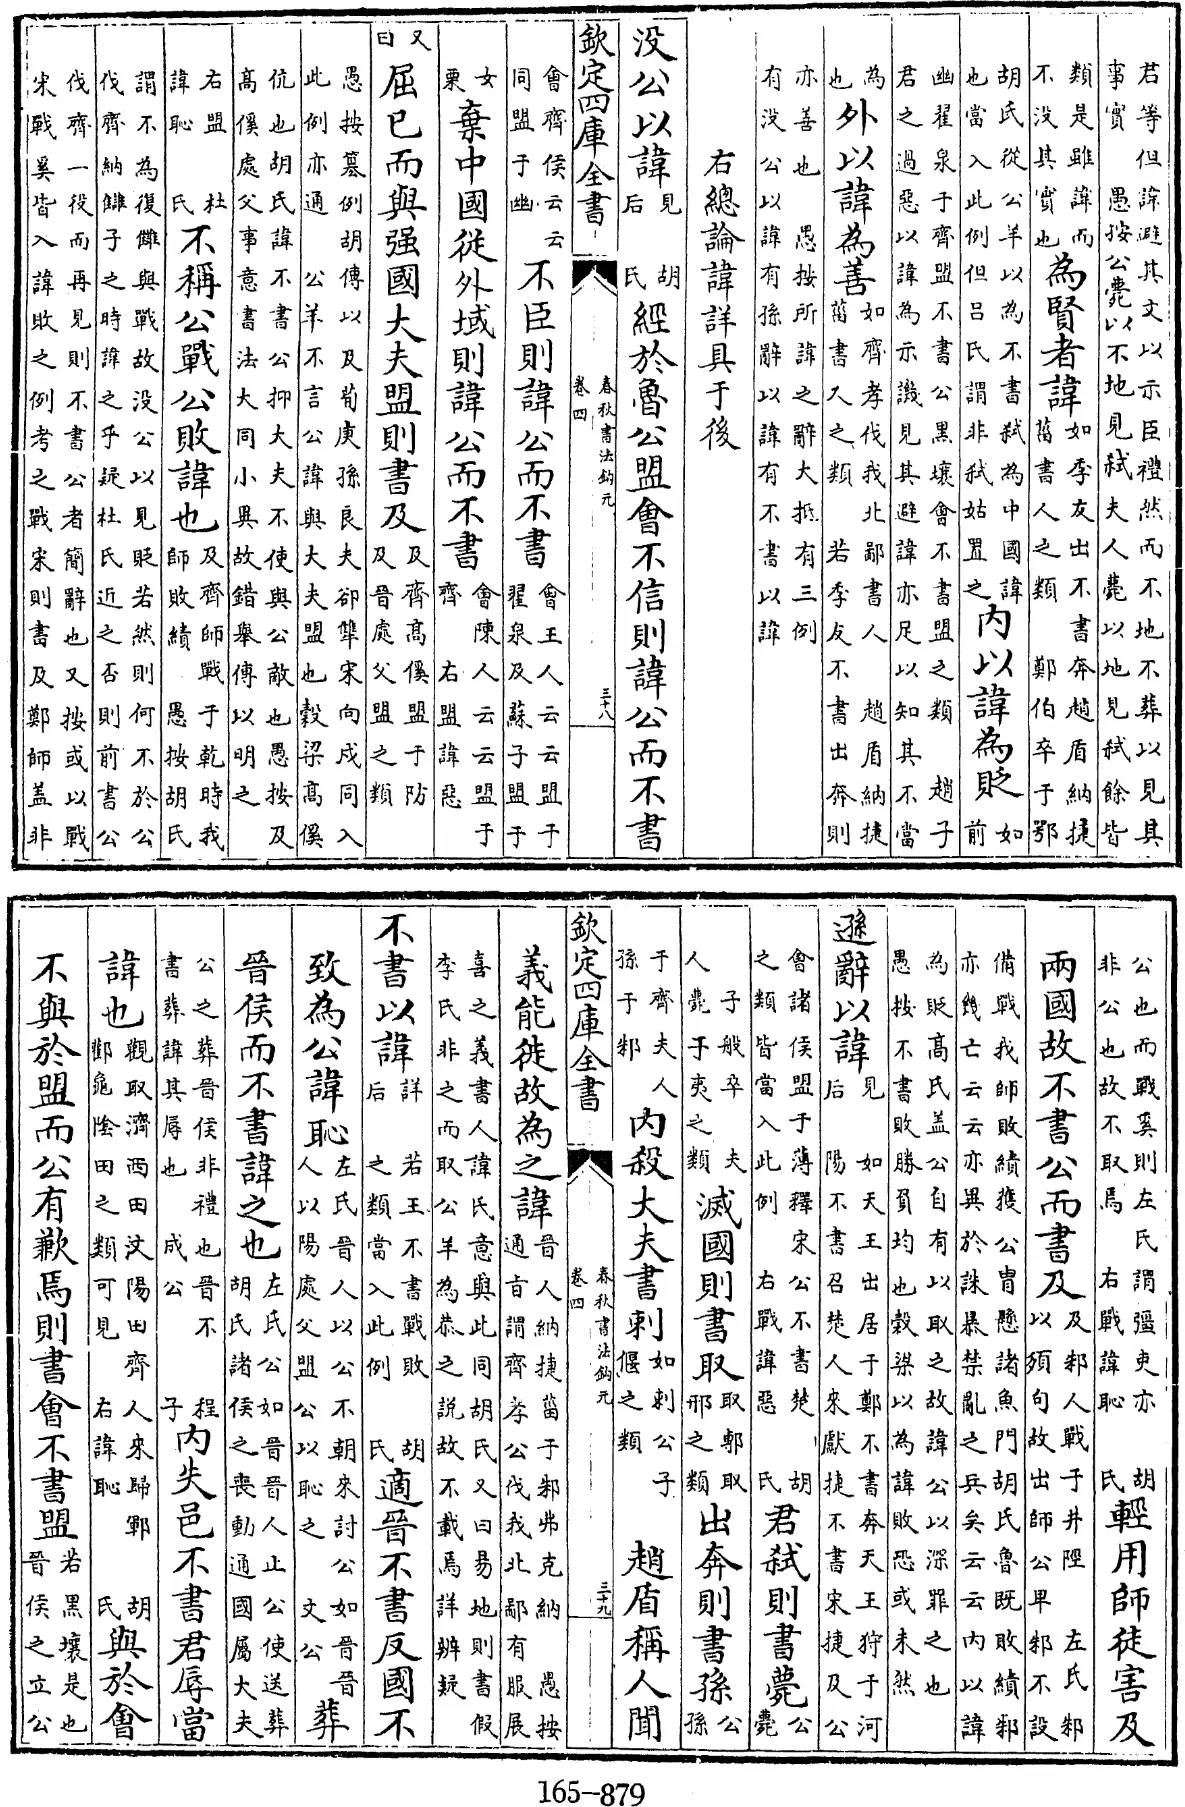 君等但諱避其文以示臣禮然而不地不葬以見其
事實 愚按公薨以不地見弑夫人薨以地見弑餘皆
類是雖諱而
不没其實也
為賢者諱
如季友出不書奔趙盾納捷
菑書人之類 鄭伯卒于鄂
胡氏從公羊以為不書弑為中國諱
也當入此例但吕氏謂非弑姑置之
内以諱為貶
如
前
幽翟泉于齊盟不書公黑壤會不書盟之類 趙子
君之過惡以諱為示譏見其避諱亦足以知其不當
為
也
外以諱為善
如齊孝伐我北鄙書人 趙盾納捷
菑書人之類 若季友不書出奔則
亦善也 愚按所諱之辭大抵有三例
有没公以諱有孫辭以諱有不書以諱
右總論諱詳具于後
没公以諱
見后 胡氏
經於魯公盟會不信則諱公而不書
欽定四庫全書
春秋書法鈎元
卷四
三十八
會齊侯云云
同盟于幽
不臣則諱公而不書
會王人云云盟于
翟泉及蘇子盟于
女栗
棄中國從外域則諱公而不書
會陳人云云盟于
齊 右盟諱惡
又曰
屈已而與强國大夫盟則書及
及齊高傒盟于防
及晉處父盟之類
愚按纂例胡傳以及荀庚孫良夫郤犨宋向戍同入
此例亦通 公羊不言公諱與大夫盟也穀梁高傒
伉也胡氏諱不書公抑大夫不使與公敵也愚按及
高傒處父事意書法大同小異故錯舉傳以明之
右盟
諱恥
杜氏
不稱公戰公敗諱也
及齊師戰于乾時我
師敗績 愚按胡氏
謂不為復讎與戰故没公以見貶若然則何不於公
伐齊納讎子之時諱之乎疑杜氏近之否則前書公
伐齊一役而再見則不書公者簡辭也又按或以戰
宋戰奚皆入諱敗之例考之戰宋則書及鄭師盖非
公也而戰奚則左氏謂疆吏亦
非公也故不取焉 右戰諱恥
胡氏
輕用師徒害及
兩國故不書公而書及
及邾人戰于井陘 左氏邾
以須句故出師公卑邾不設
備戰我師敗績獲公胄懸諸魚門胡氏魯既敗績邾
亦幾亡云云亦異於誅暴禁亂之兵矣云云内以諱
為貶高氏盖公自有以取之故諱公以深罪之也
愚按不書敗勝負均也穀梁以為諱敗恐或未然
遜辭以諱
見后
如天王出居于鄭不書奔天王狩于河
陽不書召楚人來獻捷不書宋捷及公
會諸侯盟于薄釋宋公不書楚
之類皆當入此例 右戰諱惡
胡氏
君弑則書薨
公
薨
子般卒 夫
人薨于夷之類
滅國則書取
取鄟取
邿之類
出奔則書孫
公
孫
于齊夫人
孫于邾
内殺大夫書刺
如刺公子
偃之類
趙盾稱人聞
欽定四庫全書
春秋書法鈎元
卷四
三十九
義能徙故為之諱
晉人納捷菑于邾弗克納 愚按
通旨謂齊孝公伐我北鄙有服展
喜之義書人諱氏意與此同胡氏又曰易地則書假
李氏非之而取公羊為恭之説故不載焉詳辨疑
不書以諱
詳后
若王不書戰敗
之類當入此例
胡氏
適晉不書反國不
致為公諱恥
左氏晉人以公不朝來討公如晉晉
人以陽處父盟公以恥之 文公
葬
晉侯而不書諱之也
左氏公如晉晉人止公使送葬
胡氏諸侯之喪動通國屬大夫
公之葬晉侯非禮也晉不
書葬諱其辱也 成公
程子
内失邑不書君辱當
諱也
觀取濟西田汶陽田齊人來歸鄆
鄆龜陰田之類可見 右諱恥
胡氏
與於會
不與於盟而公有歉焉則書會不書盟
若黑壤是也
晉侯之立公
165-879